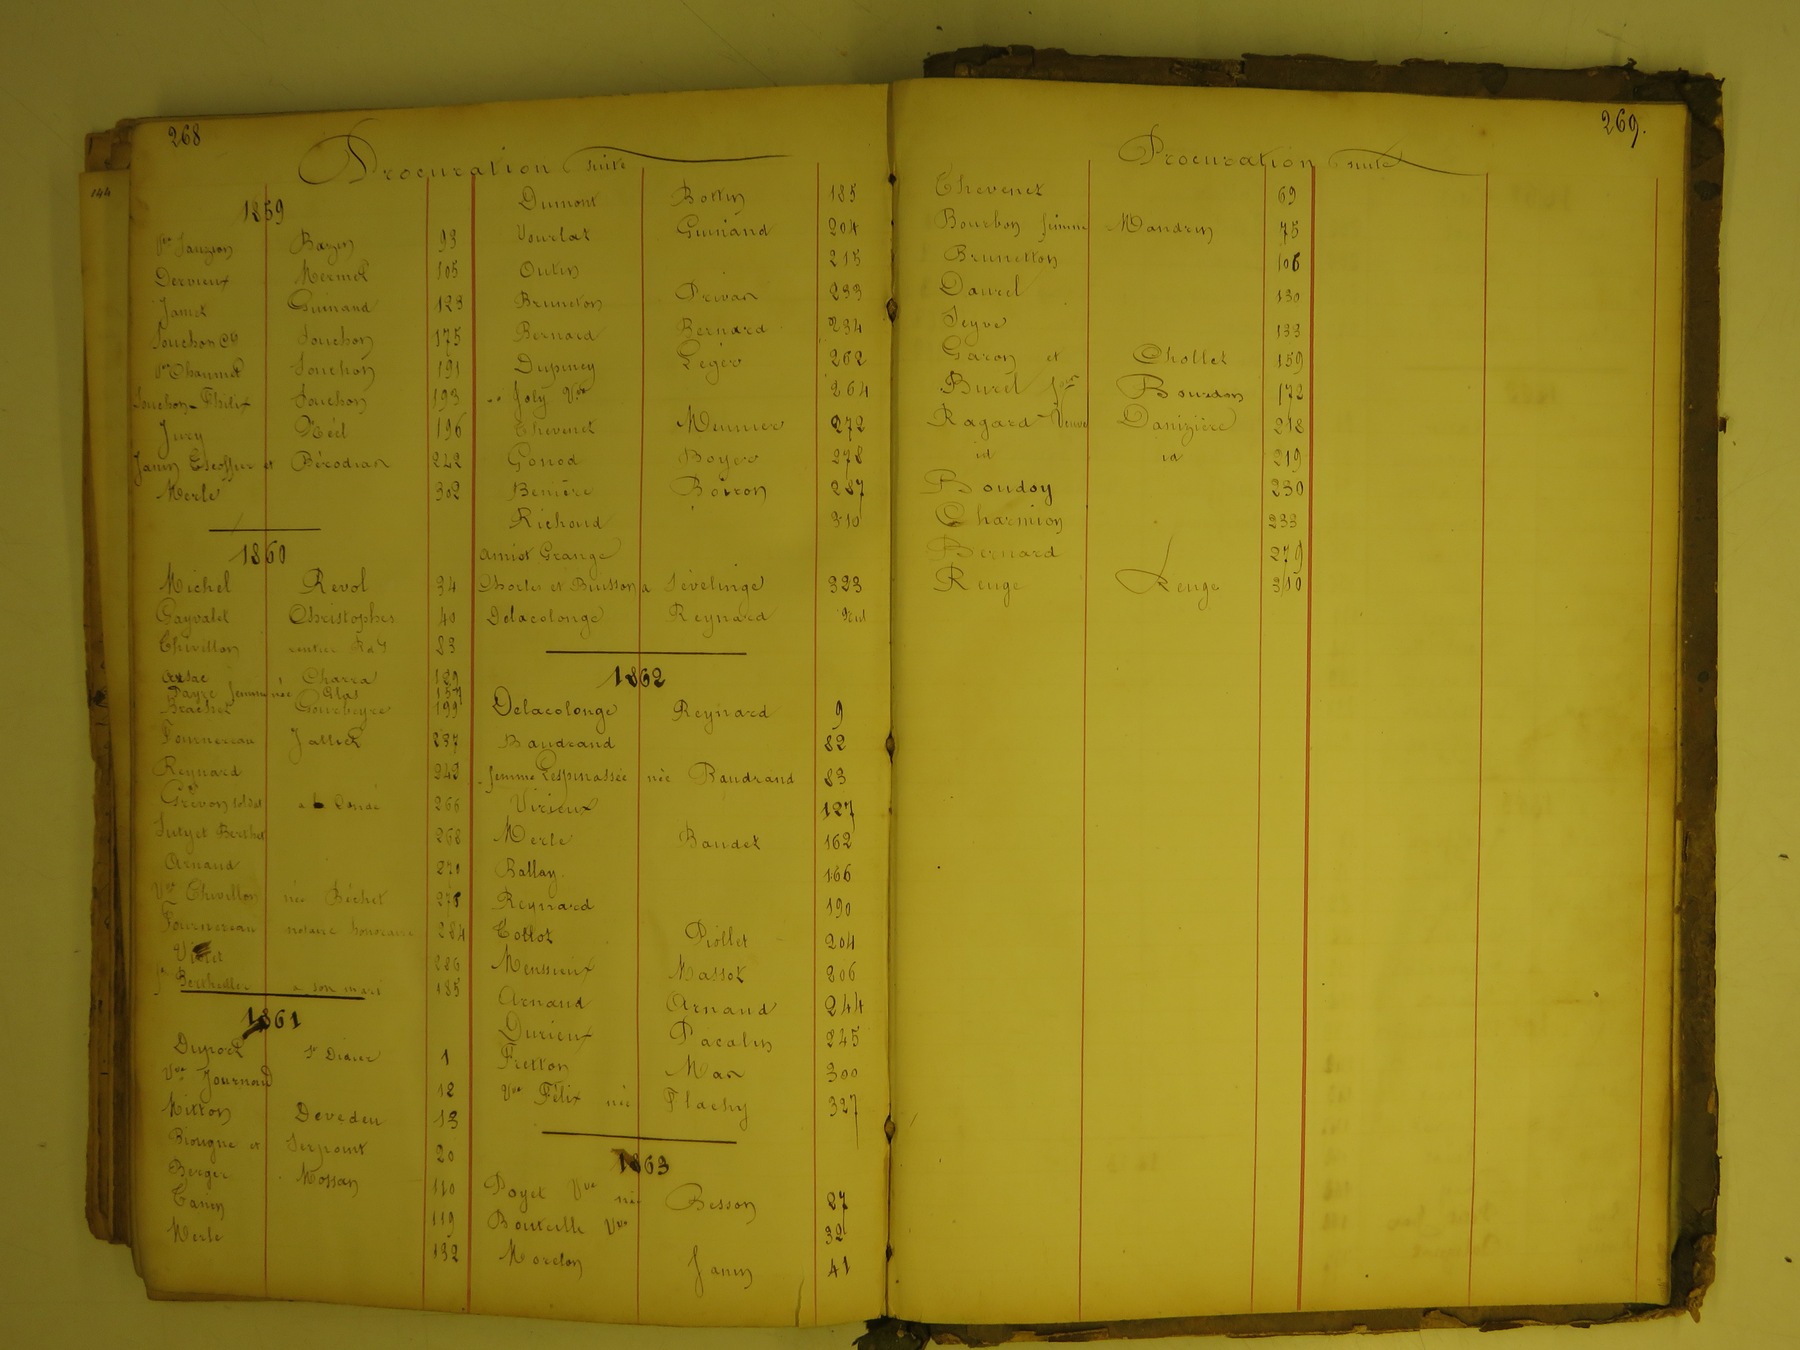 268
Procuration suite
1859
Vve Sauzion Bazin 93
Dervieux Mermet 105
Jamet Guinand 123
Souchon Cte Souchon 175
Vve Chaumet Souchon 191
Souchon-Philix Souchon 193
Jury Néel 196
Janin Escoffier et Bérodian 242
Merle 302
1860
Michel Revol 34
Gayvalet Christophe 40
Chevillon rentier 83
Arsac Charra 129
Payre femme née Glas 157
Brachet Gourbeyre 199
Fournereau Jallick 237
Reynard 242
Grévon soldat a Condé 266
July et Berthet 268
Arnaud 270
Vve Chevillon née Béchet 278
Fournereau notaire honoraire 284
Violet 286
fe Berthollier a son mari 185
1861
Duport St Didier 1
Vve Journoud 12
Mitton Devedeu 13
Biougne et Serpoint 20
Berger Mossan 110
Canin 119
Merle 132
Dumont Bottin 185
Vourlat Guinand 204
Outin 215
Bruneton Privas 233
Bernard Bernard 234
Dupiney Léger 262
Joly Vve 264
Thevenet Meunier 272
Gonod Boyer 278
Benière Boiron 287
Richoud 310
Amiot Grange
Chorles et Buisson a Sévelinge 323
Delacolonge Reynard Nul
1862
Delacolonge Reynard 9
Baudrand 82
femme Lespinassée née Baudrand 83
Virieux 127
Merle Baudet 162
Ballay 166
Reynard 190
Collot Piollet 204
Mensieux Massot 206
Arnaud Arnaud 244
Durieux Pacalin 245
Fretton Man 300
Vve Félix née Flachy 327
1863
Poyet Vve née Besson 27
Bouteille Vve 32
Moreton Janin 41
269.
Procuration suite
Thevenet 69
Bourbon femme Mandrin 75
Brunetton 106
Daurel 130
Seyve 133
Garon et Chollet 159
Burel Bourdon 172
Ragard Veuve Danizière 218
id id 219
Boudoy 230
Charmion 233
Bernard 279
Renge Renge 310
144